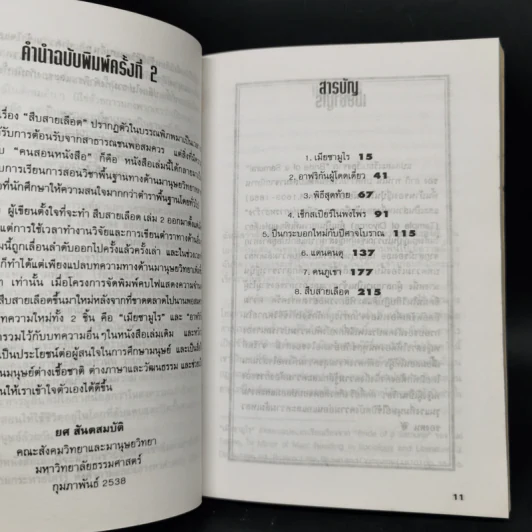 คำนำฉบับพิมพ์ครั้งที่ 2
เรื่อง "สืบสายเลือด" ปรากฏตัวในบรรณพิภพมาเป็นเวลา
รับการต้อนรับจากสาธารณชนพอสมควร แต่สิ่งที่
"คนสอนหนังสือ" ก็คือ หนังสือเล่มนี้ได้กลายมา
การเรียนการสอนวิชาพื้นฐานทางด้านมานุษยวิทยา
ที่นักศึกษาให้ความสนใจมากกว่าตำราพื้นฐานโดยทั่วไป
ผู้เขียนตั้งใจที่จะทำ สืบสายเลือด เล่ม 2 ออกมาตั้งแต่
แต่การใช้เวลาทำงานวิจัยและการเขียนตำราทางด้าน
นี้ถูกเลื่อนลำดับออกไปครั้งแล้วครั้งเล่า และในช่วงเวลา
ก็ทำได้แต่เพียงแปลบทความทางด้านมานุษยวิทยา
เท่านั้น เมื่อโครงการจัดพิมพ์คบไฟแสดงความ
สืบสายเลือดขึ้นมาใหม่หลังจากที่ขาดตลาดไปนานพอสมควร
ความใหม่ทั้ง 2 ชิ้น คือ "เมียซามูไร" และ
รวมไว้กับบทความอื่นๆ ในหนังสือเล่มเดิม และ
เป็นประโยชน์ต่อผู้สนใจในการศึกษามนุษย์ และเป็น
มนุษย์ต่างเชื้อชาติ ต่างภาษาและวัฒนธรรม และช่วย
ให้เราเข้าใจตัวเองได้ดีขึ้น
ยศ สันตสมบัติ
คณะสังคมวิทยาและมานุษยวิทยา
มหาวิทยาลัยธรรมศาสตร์
กุมภาพันธ์ 2538
สารบัญ
1. เมียซามูไร 15
2. อาฟริกันผู้โดดเดี่ยว 41
3. พิธีสุดท้าย 67
4. เช็กสเปียร์ในพงไพร 91
5. ปืนกระบอกใหม่กับปีศาจโบราณ 115
6. แดนคนดุ 137
7. คนภูเขา 177
8. สืบสายเลือด 215
11